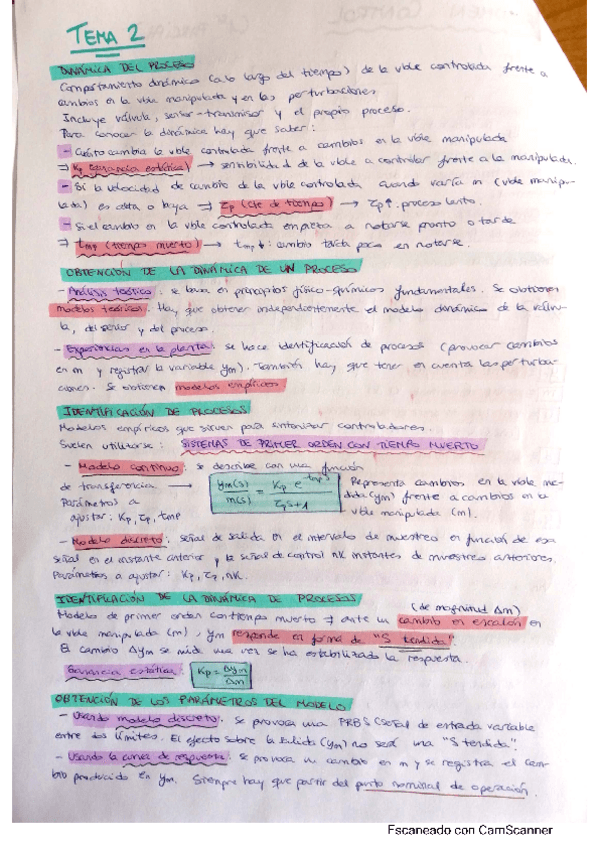 TEMA 2
DINÁMICA DEL PROCESO
Comportamiento dinámico (a lo largo del tiempo) de la vble controlada frente a
cambios en la vble manipulada y en las perturbaciones.
Incluye válvula, sensor-transmisor y el propio proceso.
Para conocer la dinámica hay que saber:
- Cuánto cambia la vble controlada frente a cambios en la vble manipulada
⇒ Kp (ganancia estática) → sensibilidad de la vble a controlar frente a la manipulada.
- Si la velocidad de cambio de la vble controlada cuando varía m (vble manipu-
lada) es alta o baja ⇒ τp (cte de tiempo) → τp↑: proceso lento.
- Si el cambio en la vble controlada empieza a notarse pronto o tarde
⇒ tmp (tiempo muerto) → tmp↓: cambio tarda poco en notarse.
OBTENCIÓN DE LA DINÁMICA DE UN PROCESO
- Análisis teórico: se basa en principios físico-químicos fundamentales. Se obtienen
modelos teóricos. Hay que obtener independientemente el modelo dinámico de la válvu-
la, del sensor y del proceso.
- Experiencias en la planta: se hace identificación de procesos (provocar cambios
en m y registrar la variable ym). También hay que tener en cuenta las perturba-
ciones. Se obtienen modelos empíricos
IDENTIFICACIÓN DE PROCESOS
Modelos empíricos que sirven para sintonizar controladores.
Suelen utilizarse: SISTEMAS DE PRIMER ORDEN CON TIEMPO MUERTO
- Modelo continuo: se describe con una función
de transferencia → ym(s)/m(s) = Kp e^-tmp s / τp s+1
Parámetros a
ajustar: Kp, τp, tmp
Representa cambios en la vble me-
dida (ym) frente a cambios en la
vble manipulada (m).
- Modelo discreto: señal de salida en el intervalo de muestreo en función de esa
señal en el instante anterior y la señal de control nK instantes de muestreo anteriores.
Parámetros a ajustar: Kp, τp, nK.
IDENTIFICACIÓN DE LA DINÁMICA DE PROCESOS
(de magnitud Δm)
Modelo de primer orden con tiempo muerto ⇒ ante un cambio en escalón en
la vble manipulada (m), ym responde en forma de "S tendida".
El cambio Δym se mide una vez se ha estabilizado la respuesta.
Ganancia estática: Kp = Δym/Δm
OBTENCIÓN DE LOS PARÁMETROS DEL MODELO
- Usando modelo discreto: se provoca una PRBS (señal de entrada variable
entre dos límites. El efecto sobre la salida (ym) no será una "S tendida".
- Usando la curva de respuesta: se provoca un cambio en m y se registra el cam-
bio producido en ym. Siempre hay que partir del punto nominal de operación.
Escaneado con CamScanner